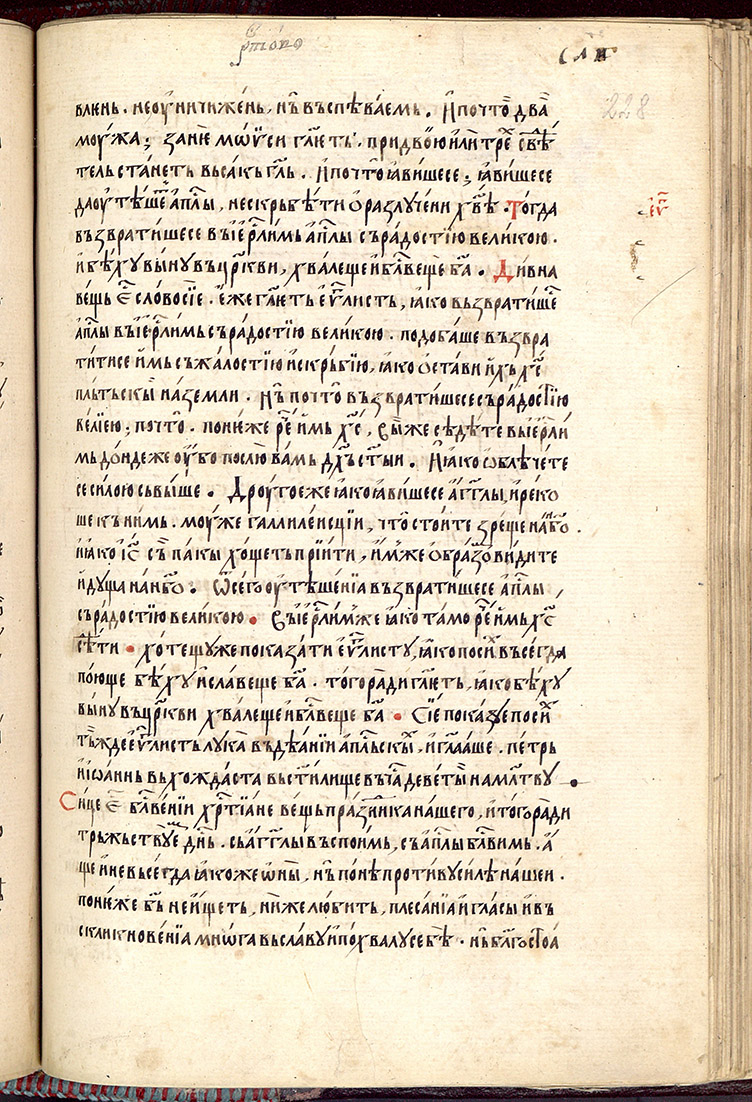 сли
228
влюнь . неоуничижень , нь въспѣваемь . И почто два
моужа ; зание мѡѵси глѥть . при двою или трѣ свѣ
тель станеть въсакь гль . И почто ꙗвишесе ; ꙗвишесе
да оутѣше апⷭлы , не скрьбѣти о разлучени хвѣ . Тогда
възвратишесе въ іерⷭлимь апⷭлы съ радостїю великою .
и бѣху выну въ цркви , хвалеще и блвеще ба . Дивна
вещь єⷭ словосїе . еже глѥть еѵⷢлисть , ꙗко възвратише
апⷭлы въ іерⷭлимь съ радостїю великою . подобаше възвра
титисе имь съ жалостїю и скрьбїю , ꙗко остави ихь хсⷭ
пльтьскы на земли . Нь почто възвратишесе съ радостїю
велїею ; почто . понеже рⷱе имь хсⷭ , вы же сѣдѣте въ іерⷭли
мь дондеже оубо послю вамь дхь стыи . И ꙗко ѡблѣчете
се силою съвыше . Дроугоеже ꙗко ꙗвишесе агглы , и реко
ше къ нимь . моуже галилеисцїи , что стоите зреще на нбо .
и ꙗко їсⷭ съ пакы хощеть прїити , имже образо видите
идуща на нбо . Ѿ сего оутѣшенїа възвратишесе апⷭлы
съ радостїю великою . Въ іерⷭлимже ꙗко тамо рⷱе имь хсⷭ
сѣти . хоте ѹже показати еѵⷢлисту , ꙗко поси въсегдя
поюще бѣху и славеще ба . того ради глѥть , ꙗко бѣху
выну въ цркви хвалеще и блвеще ба . Сїе показуе поси
тъжде еѵⷢлисть лука въ дѣанїи апⷭльскы , и глааше . петрь
и іѡаннь въхождаста въ стилище въ ча деветы на млтву .
Сице єⷭ блвенїи хрⷭтїане вещь празника нашего , и того ради
трьжьствуе днь . съ агглы въспоимь , съ апⷭлы блвимь . а
ще и не въсегда ꙗкоже ѡны , нь понѣ противу силѣ нашеи .
понеже бь не ищеть , ниже любить , плесанїа и гласы и въ
скликновенїа мнѡга въ славу и похвалу себѣ . нь блгостоа
еѵⷢ